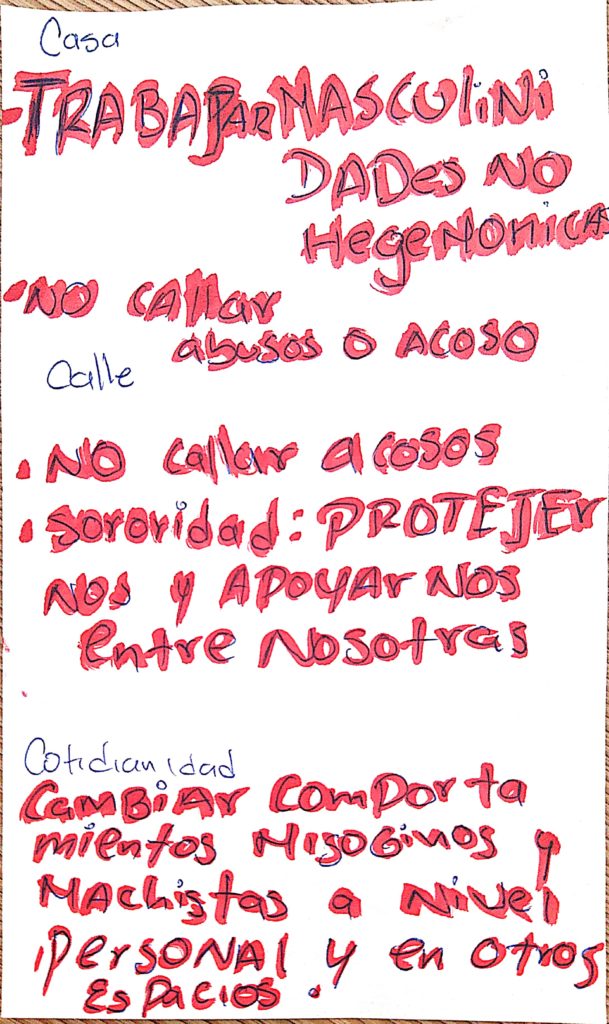 Casa
- TRABAJAR MASCULiNi
DADes NO
HegeMONiCAS
• NO CAllar
abusos o ACOSO
Calle
• NO Callar acosos
• Sororidad: PROTEJEr
NOS y APOYAr NOS
entre NosotrAs
Cotidianidad
CAMBiAr ComPorta
mientos MisoGiNos y
MAchistas a Nivel
PersoNAl y en otros
EsPACIOS.